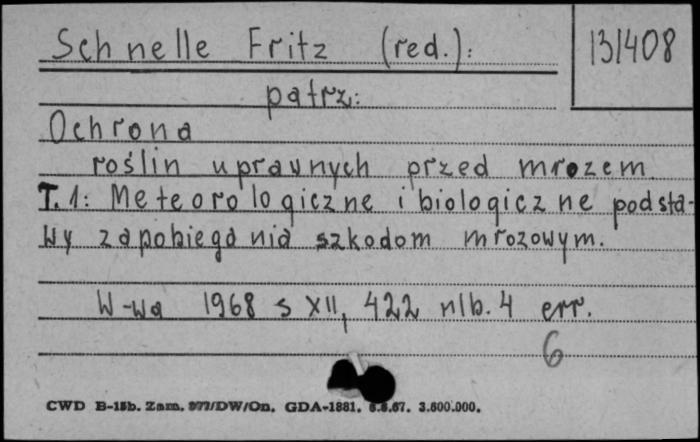 Schnelle Fritz (red.):
13/408
patrz:
Ochrona
roślin uprawnych przed mrozem
T. 1: Meteorologiczne i biologiczne podsta-
wy zapobiegania szkodom mrozowym.
W-wa 1968 s XII, 422 nlb. 4 err.
6
CWD B-15b. Zam. 977/DW/On. GDA-1881. 6.6.67. 3.600.000.